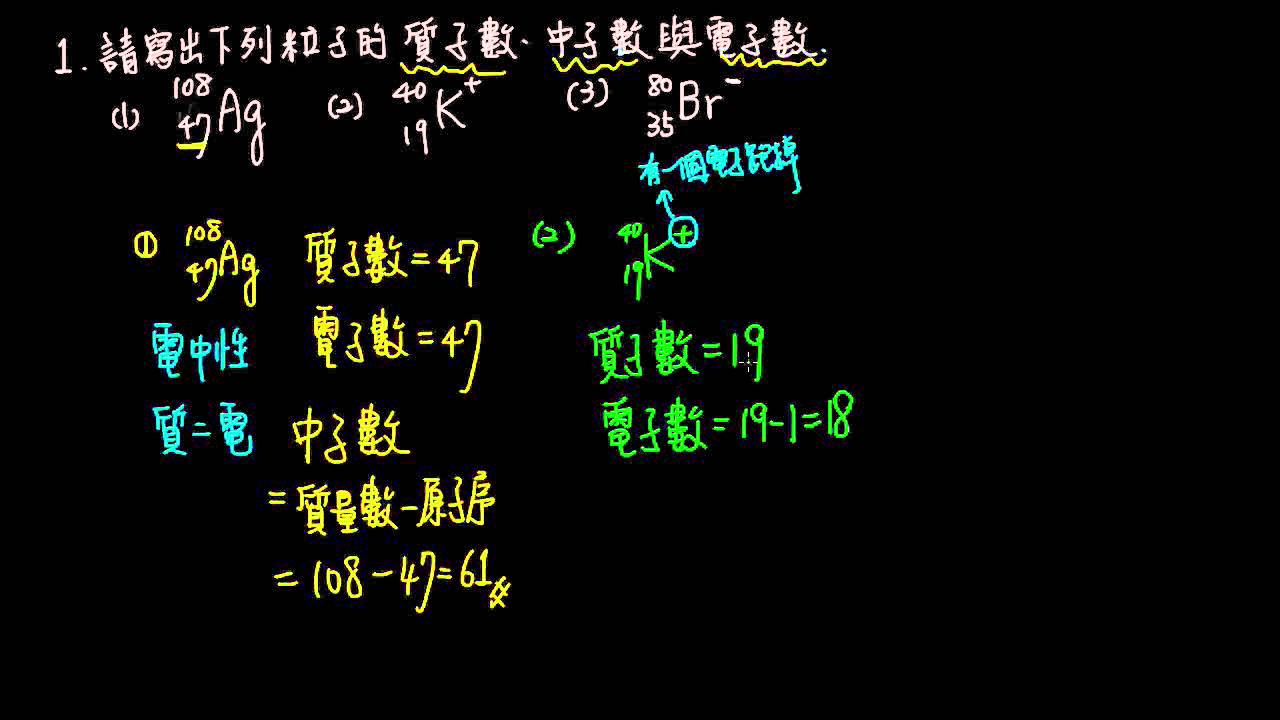 1. 請寫出下列粒子的質子數、中子數與電子數.
(1) ¹⁰⁸₄₇Ag (2) ⁴⁰₁₉K⁺ (3) ⁸⁰₃₅Br⁻
① ¹⁰⁸₄₇Ag
質子數=47
電子數=47
電中性
質=電
中子數
=質量數-原子序
=108-47=61#
有一個電子跑掉
(2) ⁴⁰₁₉K⁺
質子數=19
電子數=19-1=18